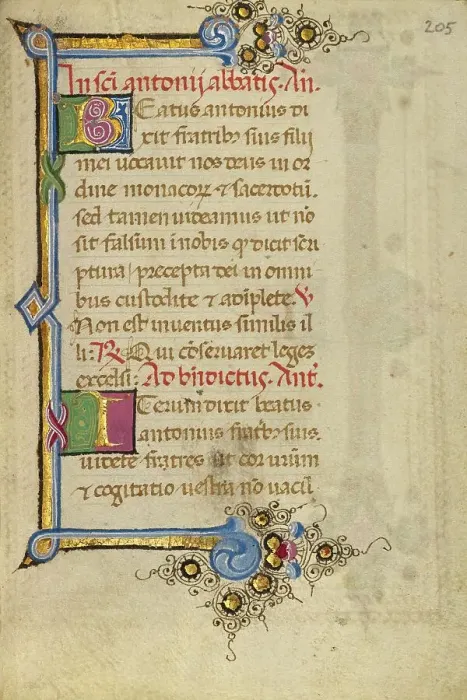 205
In sci antonij abbatis. An.
Beatus antonius di
xit fratribȝ suis filij
mei uocauit nos deus in or
dine monacoꝝ ⁊ sacerdotū.
sed tamen uideamus ut nō
sit falsum ī nobis qꝫ dicit scri
ptura / precepta dei in omni
bus custodite ⁊ adīplete. V
Non est inuentus similis il
li: R Qui cōseruaret leges
excelsi: Ad bn̄dictus. Ant.
Iterum dixit beatus
antonius fratribȝ suis.
uidete fratres ut cor urūm
⁊ cogitatio uestra nō uacū